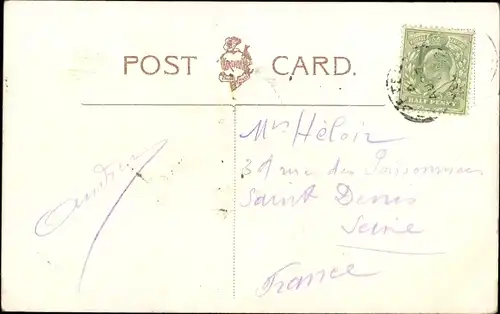 POST CARD.
HALF PENNY
Mrs Héloir
39 rue des Poissonniers
Saint Denis
Seine
France